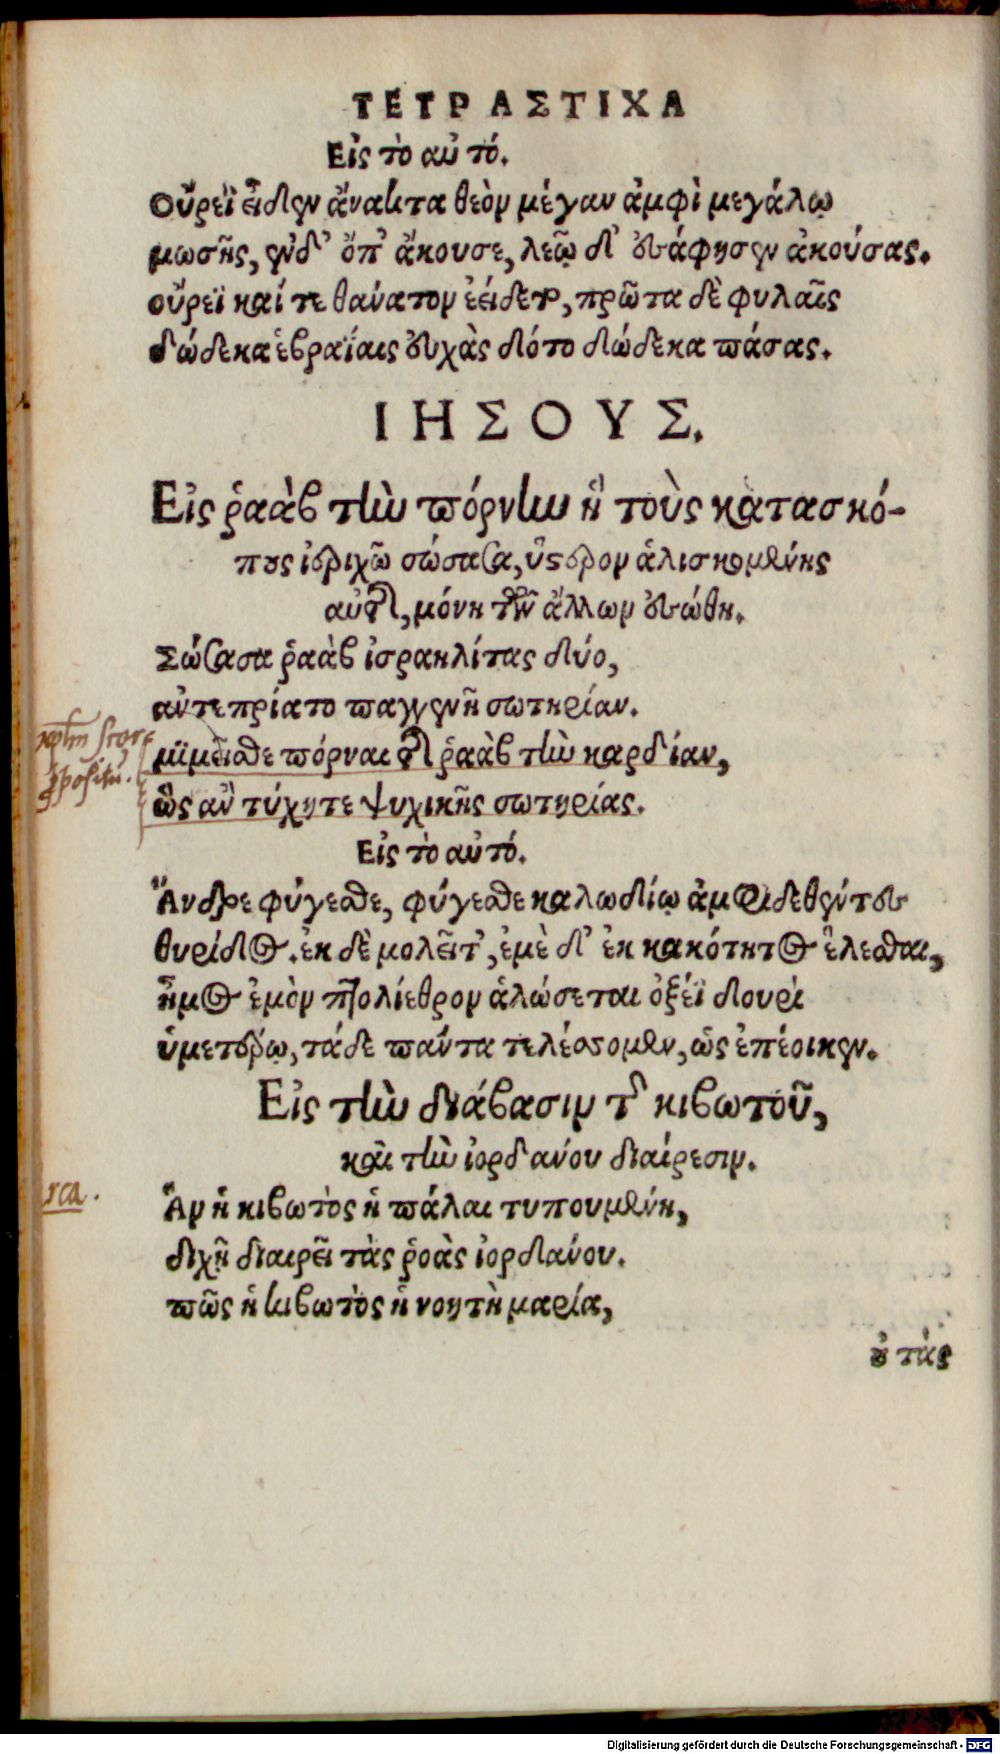 ΤΕΤΡΑΣΤΙΧΑ
Εἰς τὸ αὐτό.
Οὔρεϊ εἶδεν ἄνακτα θεὸν μέγαν ἀμφὶ μεγάλῳ
μωσῆς, ἔνδ' ὄπ' ἄκουσε, λεῷ δ' διάφησεν ἀκούσας.
οὔρεϊ καί τε θάνατον ἐείδετο, πρῶτα δὲ φυλαῖς
δώδεκα ἑβραΐαις εὐχὰς δότο δώδεκα πάσας.
ΙΗΣΟΥΣ.
Εἰς ῥαὰβ τὴν πόρνην ἣ τοὺς κατασκό-
πους ἱεριχῶ σώσασα, ὕστερον ἁλισκομένης
αὐτῆς, μόνη τῶν ἄλλων ἐσώθη.
Σώσασα ῥαὰβ ἰσραηλίτας δύο,
ἀντεπρίατο παγγενῆ σωτηρίαν.
μιμεῖσθε πόρναι τῆς ῥαὰβ τὴν καρδίαν,
ὡς ἂν τύχητε ψυχικῆς σωτηρίας.
Εἰς τὸ αὐτό.
Ἄνδρε φύγεσθε, φύγεσθε καλωδίῳ ἀμφιδεθέντες
θυρίδος. ἐκ δὲ μολεῖτ', ἐμὲ δ' ἐκ κακότητος ἕλεσθαι,
ἦμος ἐμὸν πτολίεθρον ἁλώσεται ὀξέϊ δουρὶ
ὑμετέρῳ, τάδε πάντα τελέσσομεν, ὡς ἐπέοικεν.
Εἰς τὴν διάβασιν τῆς κιβωτοῦ,
καὶ τὴν ἰορδάνου διαίρεσιν.
rca.
Ἂν ἡ κιβωτὸς ἡ πάλαι τυπουμένη,
διχῆ διαιρεῖ τὰς ῥοὰς ἰορδάνου.
πῶς ἡ κιβωτὸς ἡ νοητὴ μαρία,
οὐ τὰς
Digitalisierung gefördert durch die Deutsche Forschungsgemeinschaft - DFG